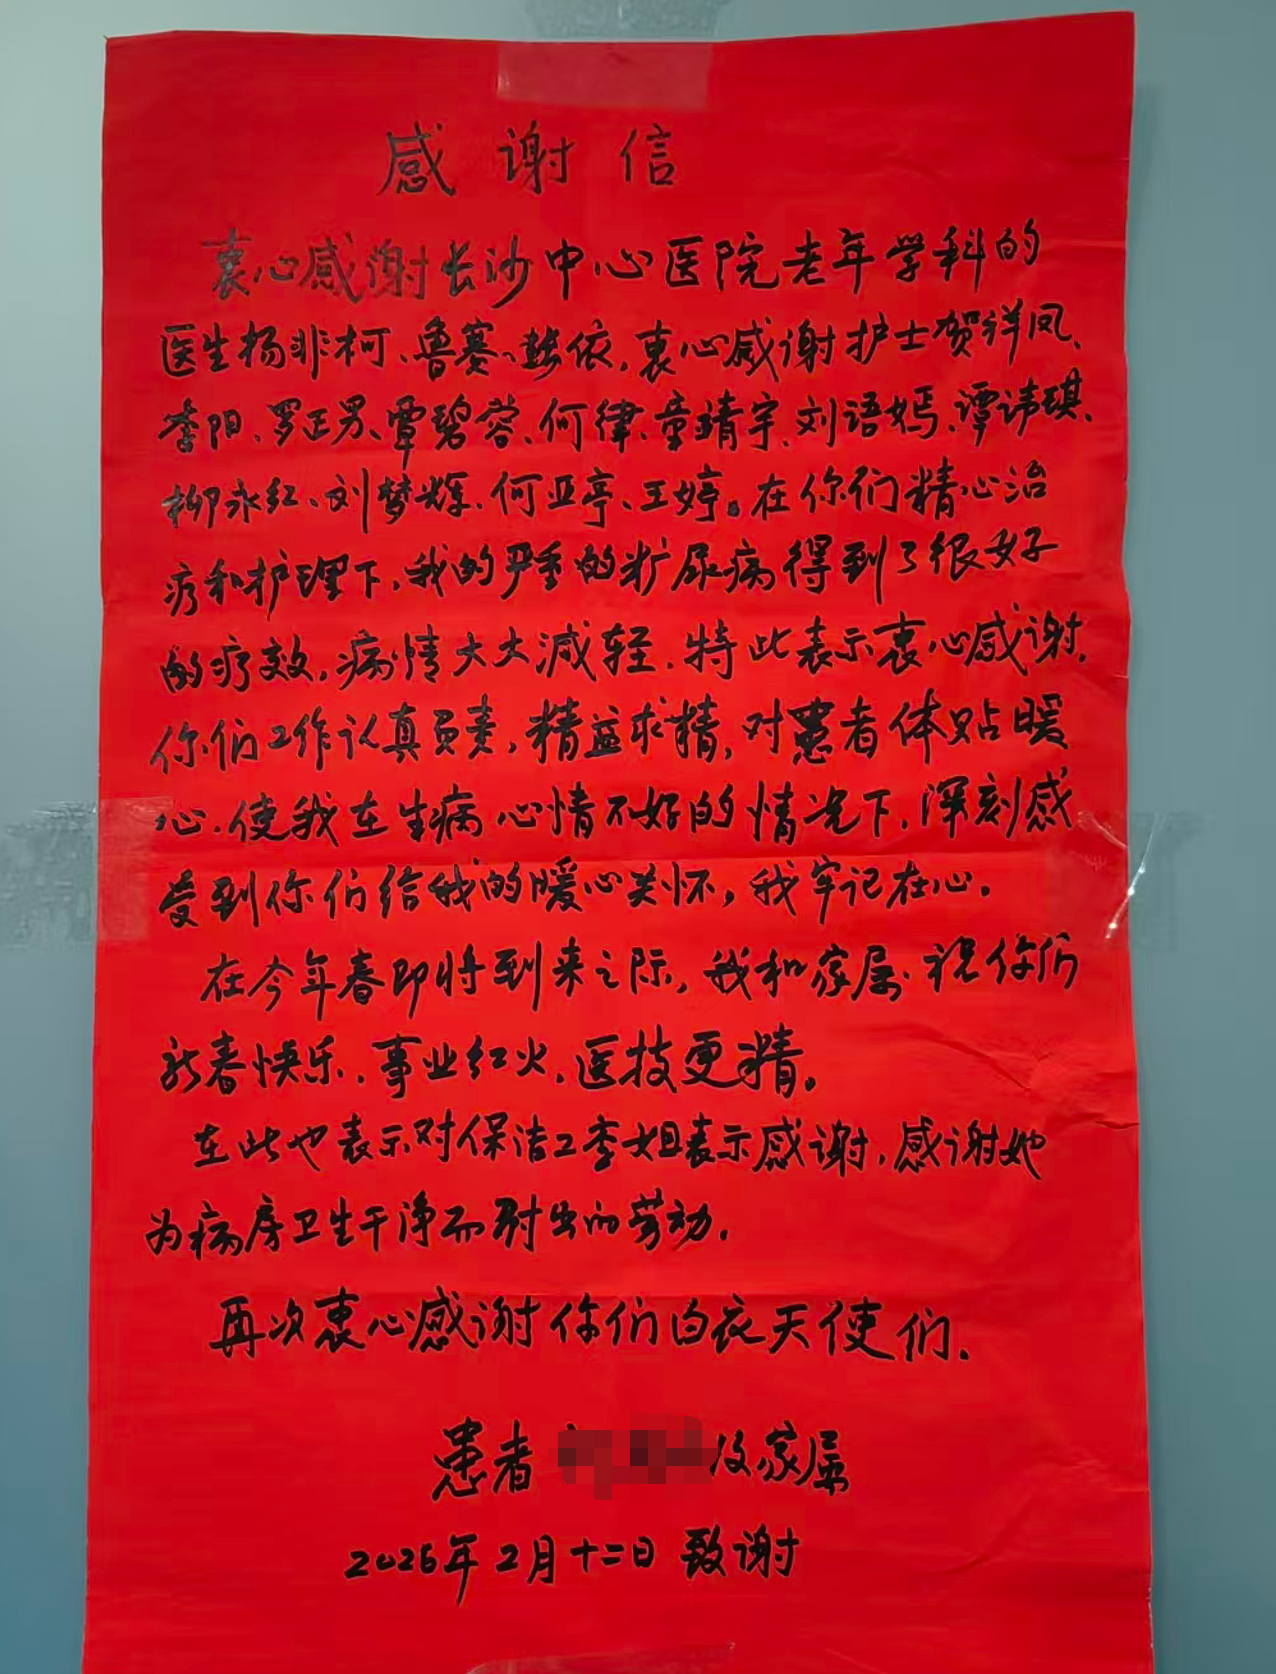 感谢信
衷心感谢长沙中心医院老年学科的
医生杨非柯、鲁赛、依,衷心感谢护士贺祥凤、
李阳、罗正男、覃碧蓉、何律、童靖宇、刘语嫣、谭沛琪、
柳永红、刘梦辉、何亚亭、王婷。在你们精心治
疗和护理下,我的严重的糖尿病得到了很好
的疗效,病情大大减轻,特此表示衷心感谢,
你们工作认真负责,精益求精,对患者体贴暖
心,使我在生病心情不好的情况下,深刻感
受到你们给我的暖心关怀,我牢记在心。
在今年春即将到来之际,我和家属祝你们
新春快乐,事业红火,医技更精。
在此也表示对保洁工李姐表示感谢,感谢她
为病房卫生干净而付出的劳动。
再次衷心感谢你们白衣天使们。
患者 及家属
2026年2月十二日 致谢